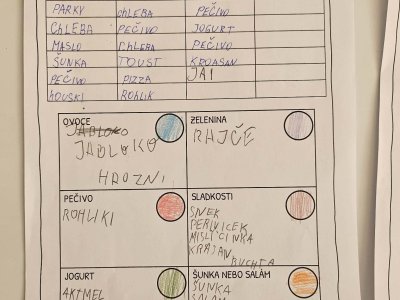 PARKY CHLEBA PEČIVO
CHLEBA PEČIVO JOGURT
MASLO CHLEBA PEČIVO
ŠUNKA TOUST KROASAN
PEČIVO PIZZA JAI
HOUSKI ROHLIK
OVOCE
JABLOKO
JABLOKO
HROZNI
ZELENINA
RAJČE
PEČIVO
ROHLIKI
SLADKOSTI
SNEK
PERNICEK
MISLI CINKA
KRAJAN
BUCHTA
JOGURT
AKTMEL
ŠUNKA NEBO SALÁM
ŠUNKA
SALAM